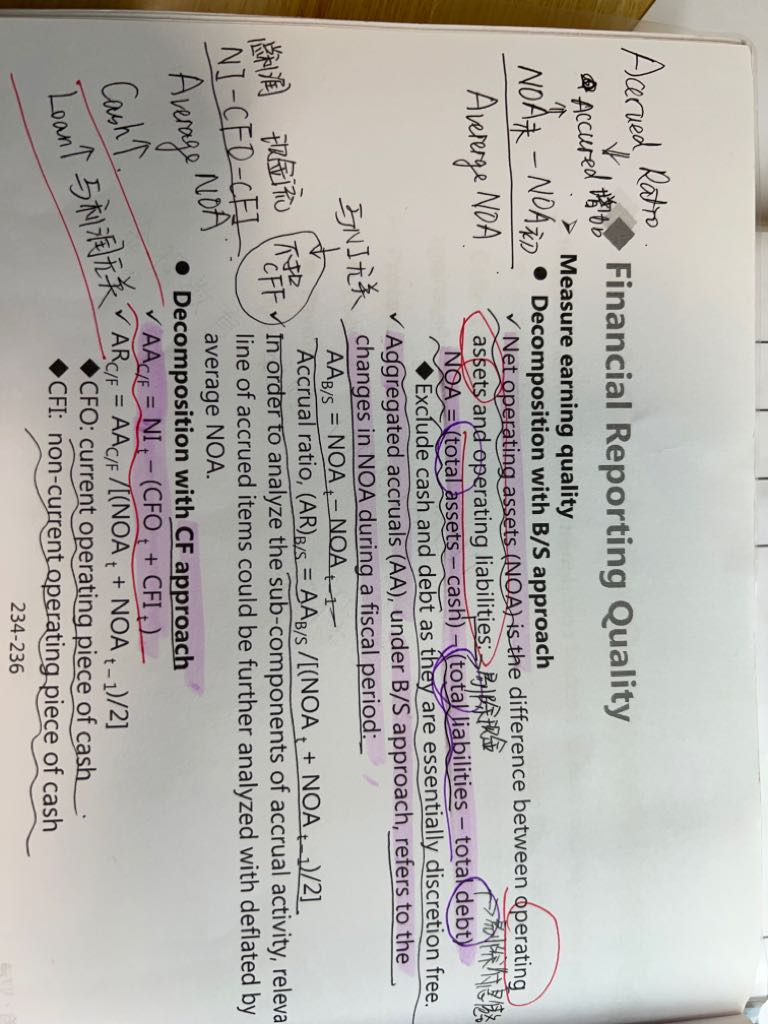 Accrued Ratio.
↓
Accured 增加
NOA末 - NOA初
Average NOA
◆ Financial Reporting Quality
➢ Measure earning quality
● Decomposition with B/S approach
✓ Net operating assets (NOA) is the difference between operating
assets and operating liabilities:
→剔除现金
NOA = (total assets – cash) – (total liabilities – total debt)
◆Exclude cash and debt as they are essentially discretion free.
✓ Aggregated accruals (AA), under B/S approach, refers to the
changes in NOA during a fiscal period:
与NI无关
AA B/S = NOA t – NOA t–1
Accrual ratio, (AR) B/S = AA B/S /[(NOA t + NOA t–1)/2]
✓ In order to analyze the sub-components of accrual activity, releva
line of accrued items could be further analyzed with deflated by
average NOA.
现金流
NI-CFO-CFI
Average NOA
CFF
● Decomposition with CF approach
✓ AA C/F = NI t – (CFO t + CFI t)
✓ AR C/F = AA C/F /[(NOA t + NOA t–1)/2]
◆CFO: current operating piece of cash
◆CFI: non-current operating piece of cash
Cash↑
Loan↑ 与利润无关
234-236